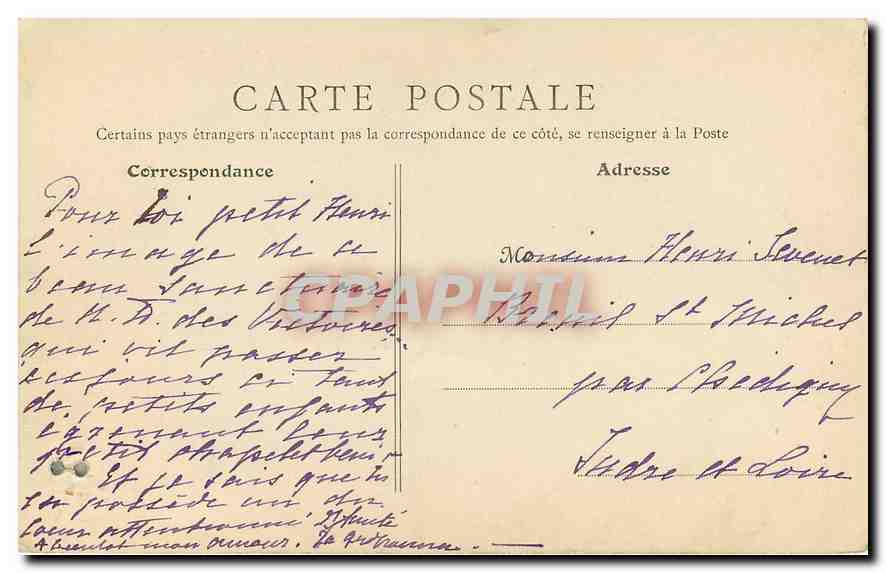 CARTE POSTALE
Certains pays étrangers n'acceptant pas la correspondance de ce côté, se renseigner à la Poste
Correspondance
Pour toi petit Henri
l'image de ce
beau sanctuaire
de N. D. des Victoires,
qui vit passer
ces jours ci tant
de petits enfants
égrenant leur
petit chapelet beni
Et je sais que tu
en possède un du
coeur
A bientot mon amour. Ta
Adresse
Monsieur Henri Sevenet
Breuil St Michel
par Chédigny
Indre et Loire
CPAPHIL